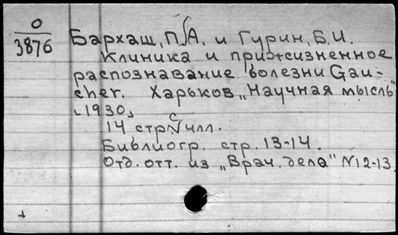 О
3876
Бархаш, П.А. и Гурин, Б.И.
Клиника и прижизненное
распознавание болезни Gau-
cher. Харьков „Научная мысль"
1930,
14 стр. с илл.
Библиогр. стр. 13-14.
Отд. отт. из „Врач. дела" N12-13.